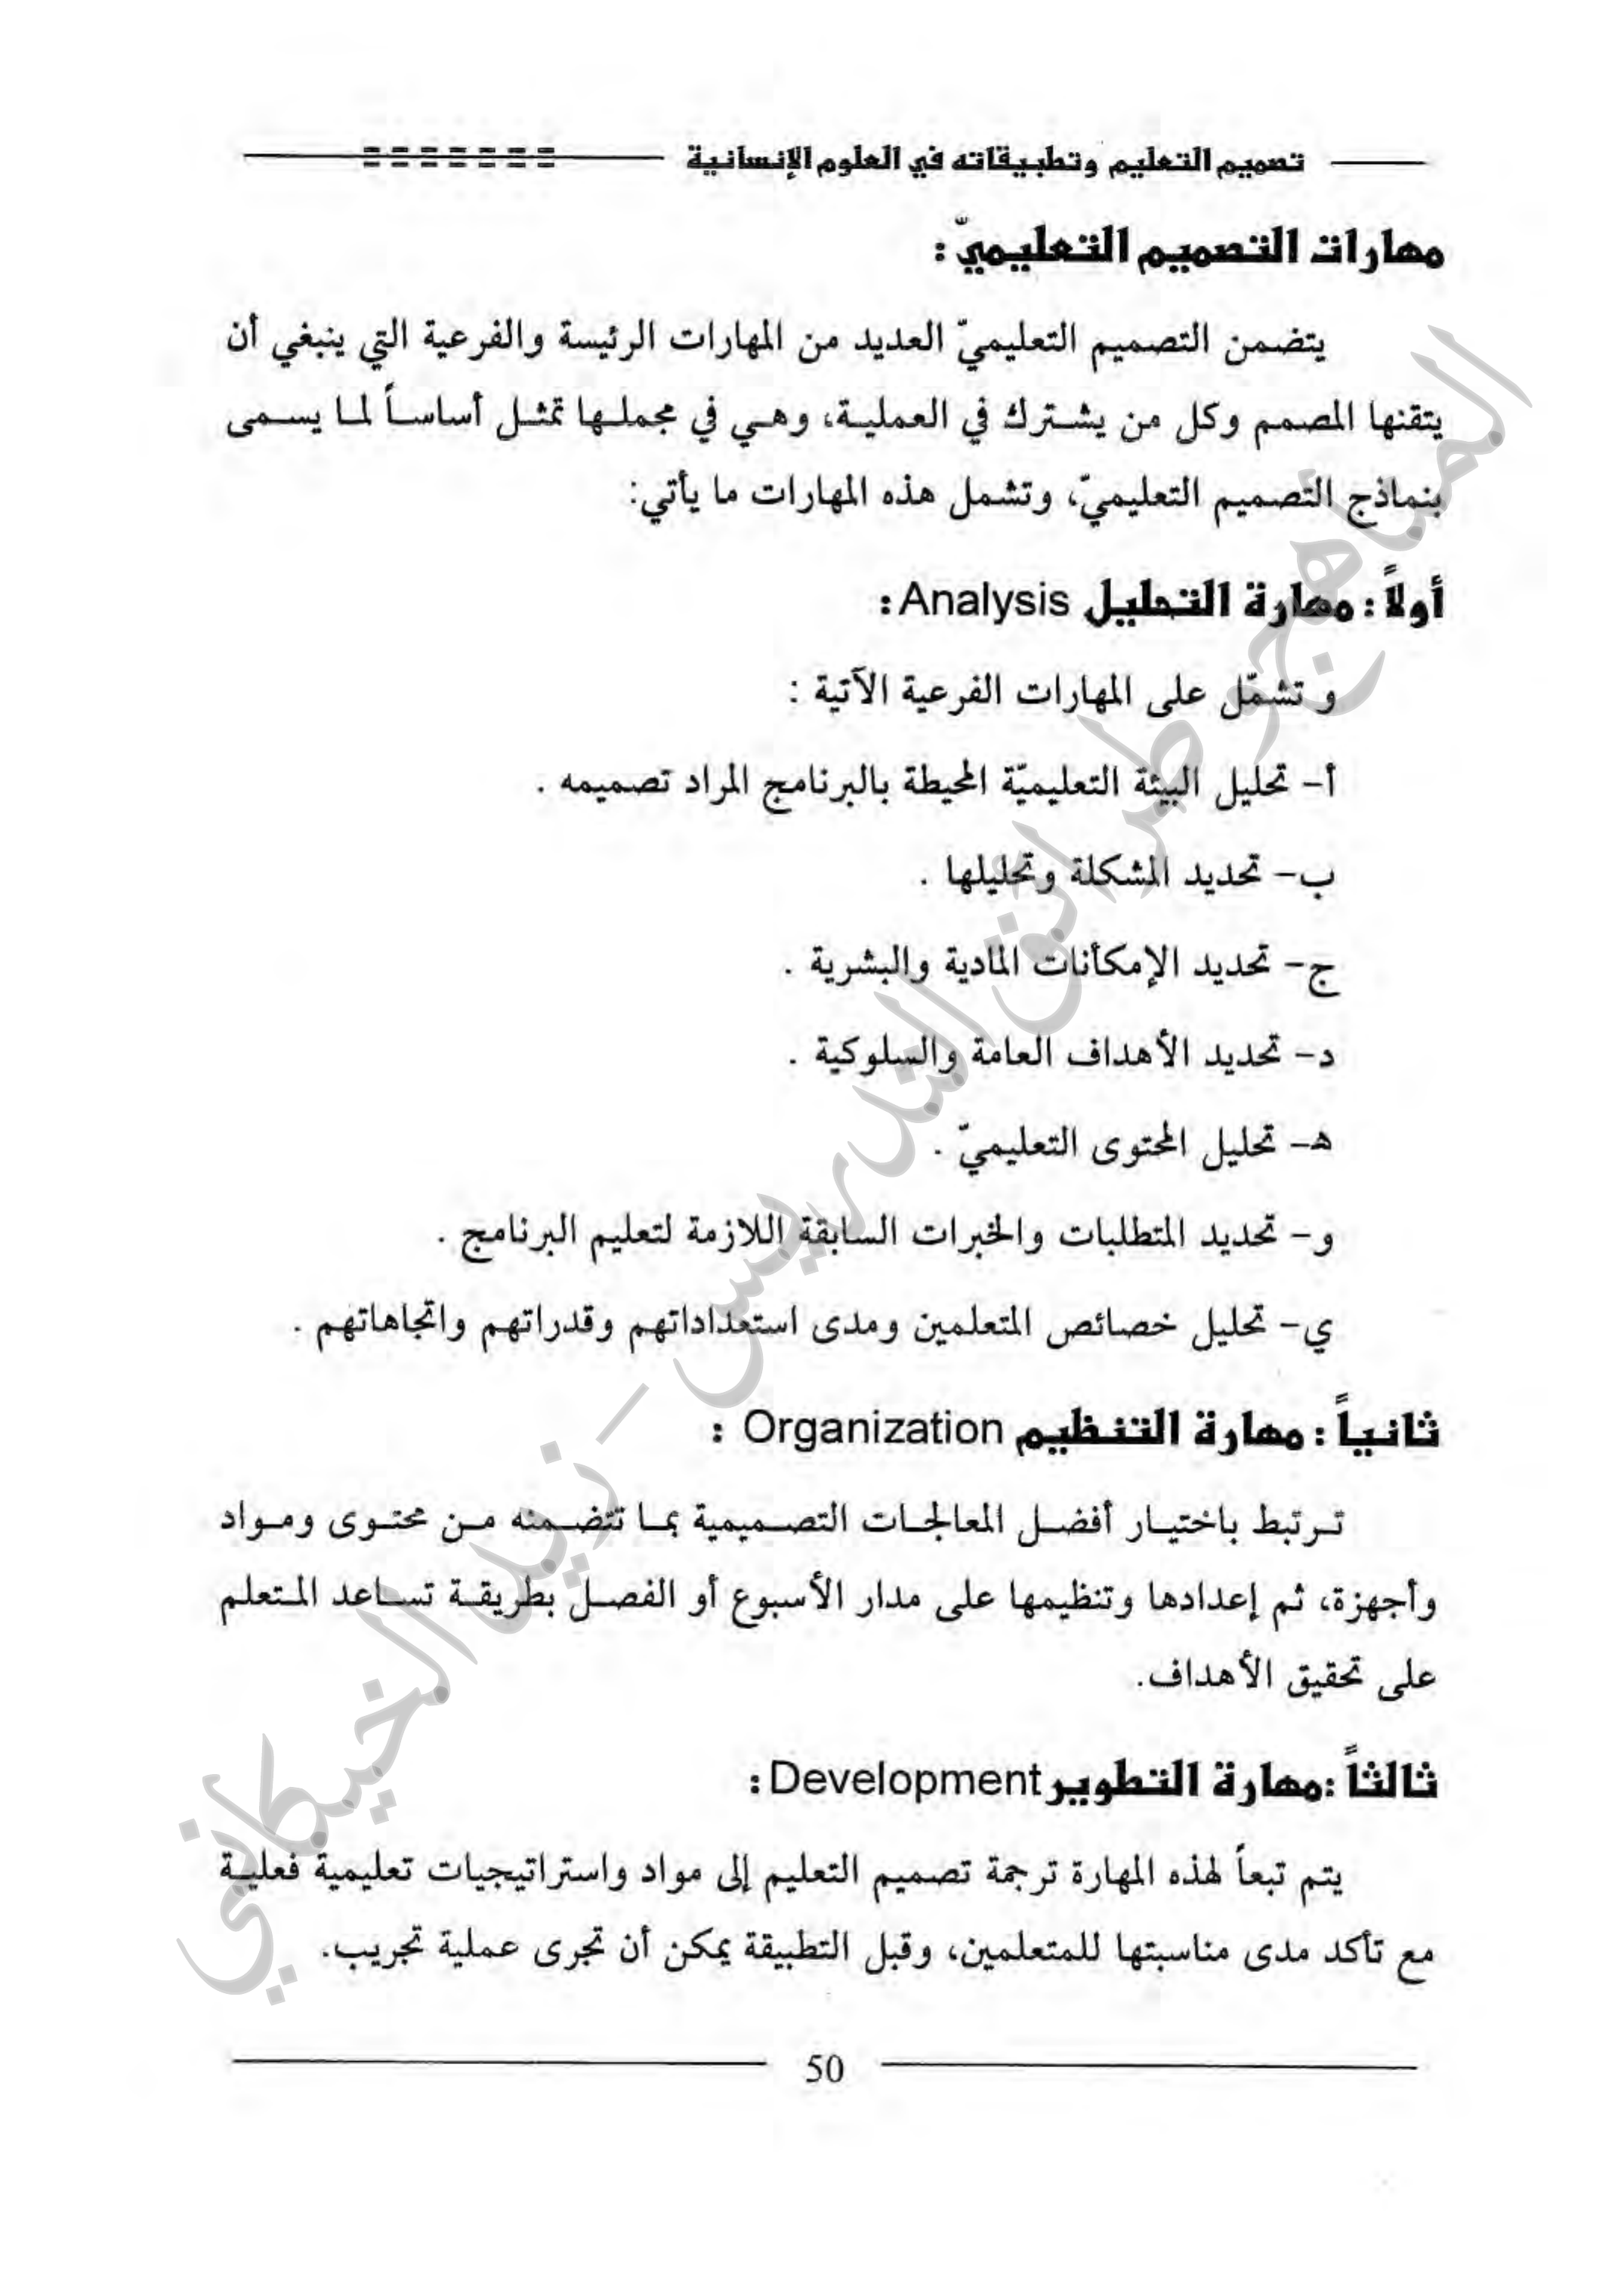 تصميم التعليم وتطبيقاته في العلوم الإنسانية
مهارات التصميم التعليميّ :
يتضمن التصميم التعليميّ العديد من المهارات الرئيسة والفرعية التي ينبغي أن
يتقنها المصمم وكل من يشترك في العملية، وهي في مجملها تمثل أساساً لما يسمى
بنماذج التصميم التعليميّ، وتشمل هذه المهارات ما يأتي:
أولاً : مهارة التحليل Analysis :
و تشمّل على المهارات الفرعية الآتية :
أ- تحليل البيئة التعليميّة المحيطة بالبرنامج المراد تصميمه .
ب- تحديد المشكلة وتحليلها .
ج- تحديد الإمكأنات المادية والبشرية .
د- تحديد الأهداف العامة والسلوكية .
هـ- تحليل المحتوى التعليميّ .
و- تحديد المتطلبات والخبرات السابقة اللازمة لتعليم البرنامج .
ي- تحليل خصائص المتعلمين ومدى استعداداتهم وقدراتهم واتجاهاتهم .
ثانياً : مهارة التنظيم Organization :
ترتبط باختيار أفضل المعالجات التصميمية بما تتضمنه من محتوى ومواد
وأجهزة، ثم إعدادها وتنظيمها على مدار الأسبوع أو الفصل بطريقة تساعد المتعلم
على تحقيق الأهداف.
ثالثاً :مهارة التطوير Development :
يتم تبعاً لهذه المهارة ترجمة تصميم التعليم إلى مواد واستراتيجيات تعليمية فعلية
مع تأكد مدى مناسبتها للمتعلمين، وقبل التطبيقة يمكن أن تجرى عملية تجريب.
50
المناهج وطرائق التدريس - زيد الخيكاني